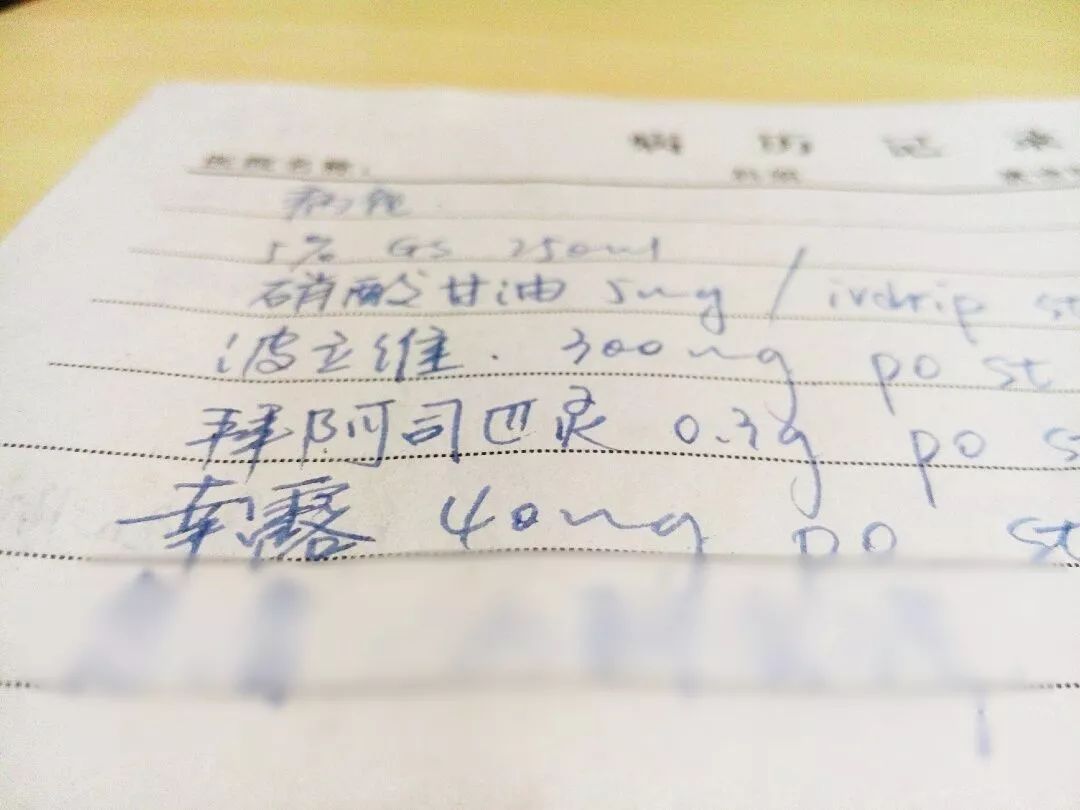 病历记录
5% GS 250ml
硝酸甘油 5mg / ivdrip st
波立维. 300mg po st
拜阿司匹灵 0.3g po s
40mg po st